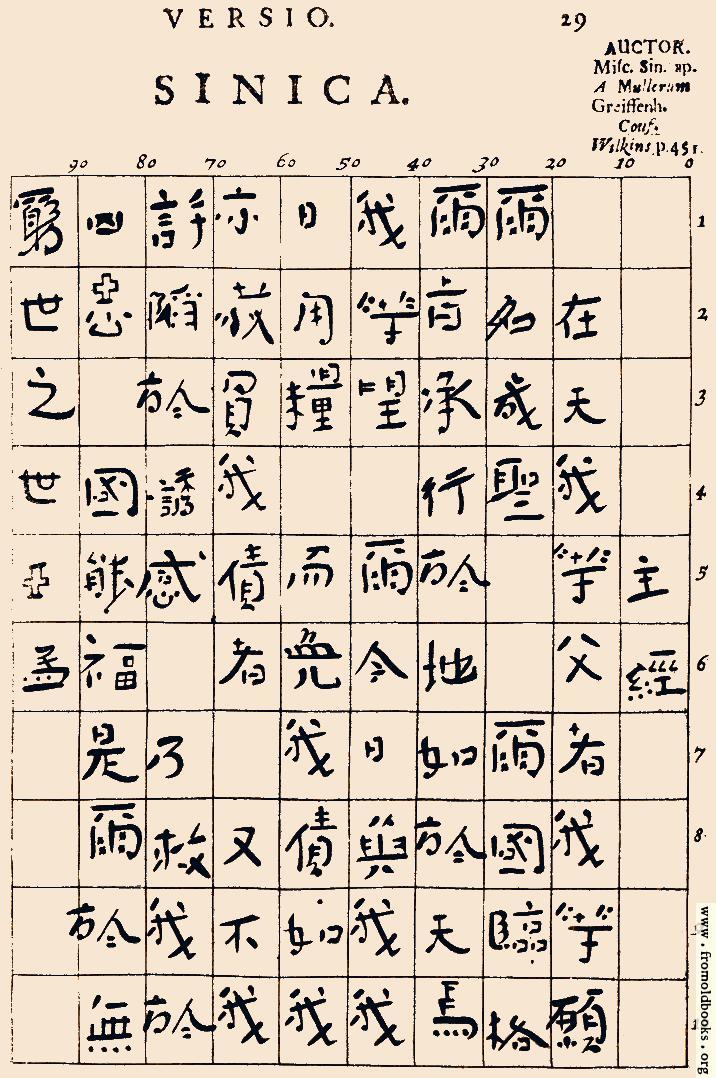 VERSIO.
29
SINICA.
AUCTOR.
Misc. Sin. ap.
A Mullerum
Greiffenh.
Conf.
Wilkins p. 451.
90 80 70 60 50 40 30 20 10 0
1
2
3
4
5
6
7
8
主經
在天我等父者我等願
爾名成聖爾國臨格
爾旨承行於地如於天焉
我等望爾今日與我我
日用糧而免我債如我
亦赦負我債者又不我
許陷於誘感乃救我於
四惡國能福是爾於無
窮世之世亞孟
www.fromoldbooks.org